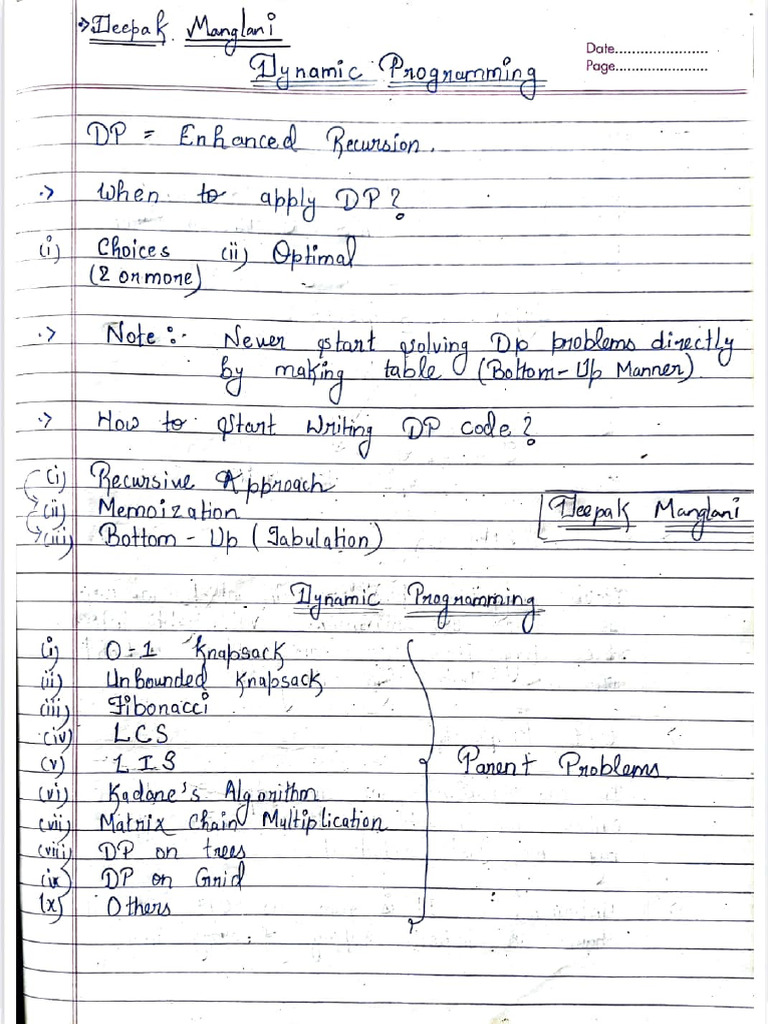 -> Deepak Manglani
Date.......................
Page.......................
Dynamic Programming
DP = Enhanced Recursion.
.> When to apply DP?
(i) Choices (ii) Optimal
(2 or more)
.> Note :- Never start solving Dp problems directly
by making table (Bottom-Up Manner)
.> How to start writing DP code?
(i) Recursive Approach
(ii) Memoization
(iii) Bottom-Up (Tabulation)
Deepak Manglani
Dynamic Programming
(i) 0-1 Knapsack
(ii) Unbounded Knapsack
(iii) Fibonacci
(iv) LCS
(v) LIS
(vi) Kadane's Algorithm
(vii) Matrix Chain Multiplication
(viii) DP on trees
(ix) DP on Grid
(x) Others
Parent Problems